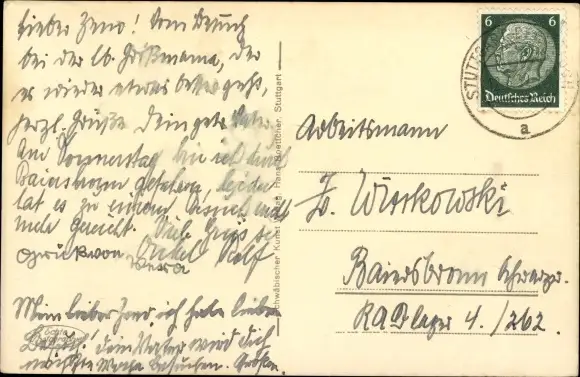 Lieber Zeno! Vom Besuch
bei der lb. Großmama, der
es wieder etwas besser geht,
herzl. Grüße Dein getr. Vater.
Am Donnerstag bin ich durch
Baiersbronn gefahren, leider
hat es zu einem Besuch nicht
mehr gereicht. Viele Grüsse
Onkel Rolf
Mein lieber Zeno, ich habe lieben
Besuch, dein Vater wird dich
nächste Woche besuchen. Grüßen
Schwäbischer Kunstverlag, Hans Boettcher, Stuttgart
6 6
Deutsches Reich
STUTTG
a
Arbeitsmann
Z. Wirkowski
Baiersbronn Schwarzw.
RAD lager 4./262.